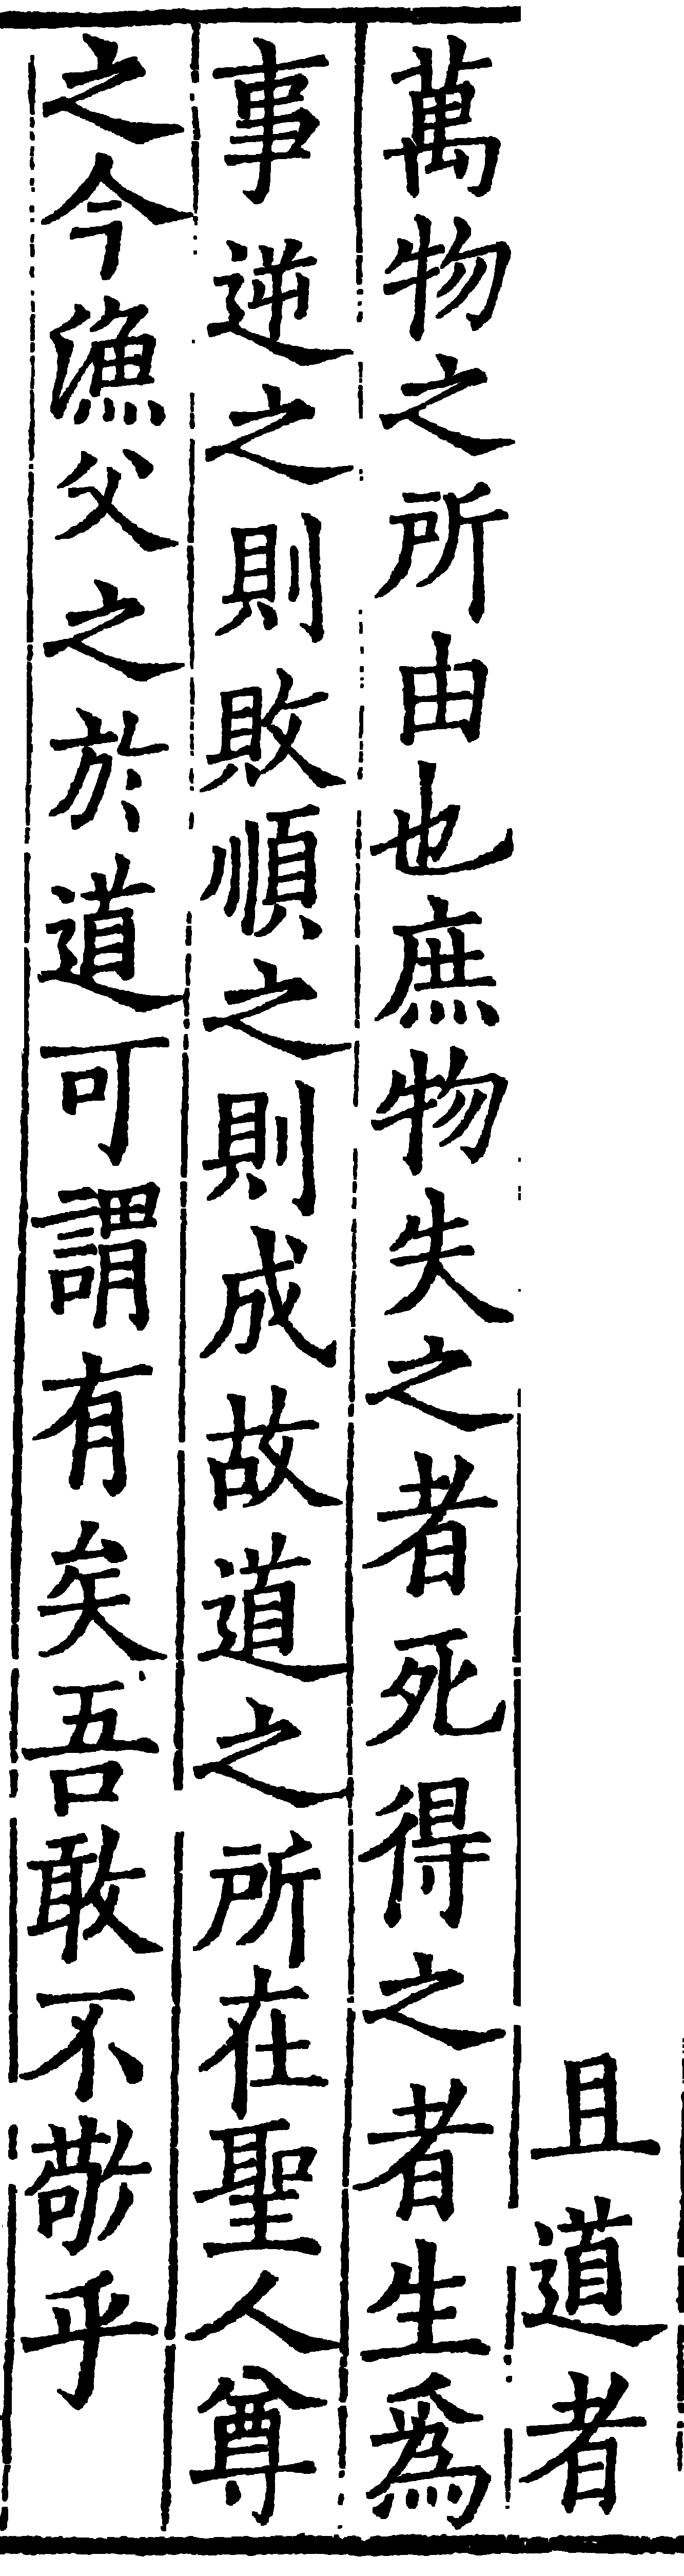 且道者
萬物之所由也庶物失之者死得之者生爲
事逆之則敗順之則成故道之所在聖人尊
之今漁父之於道可謂有矣吾敢不敬乎